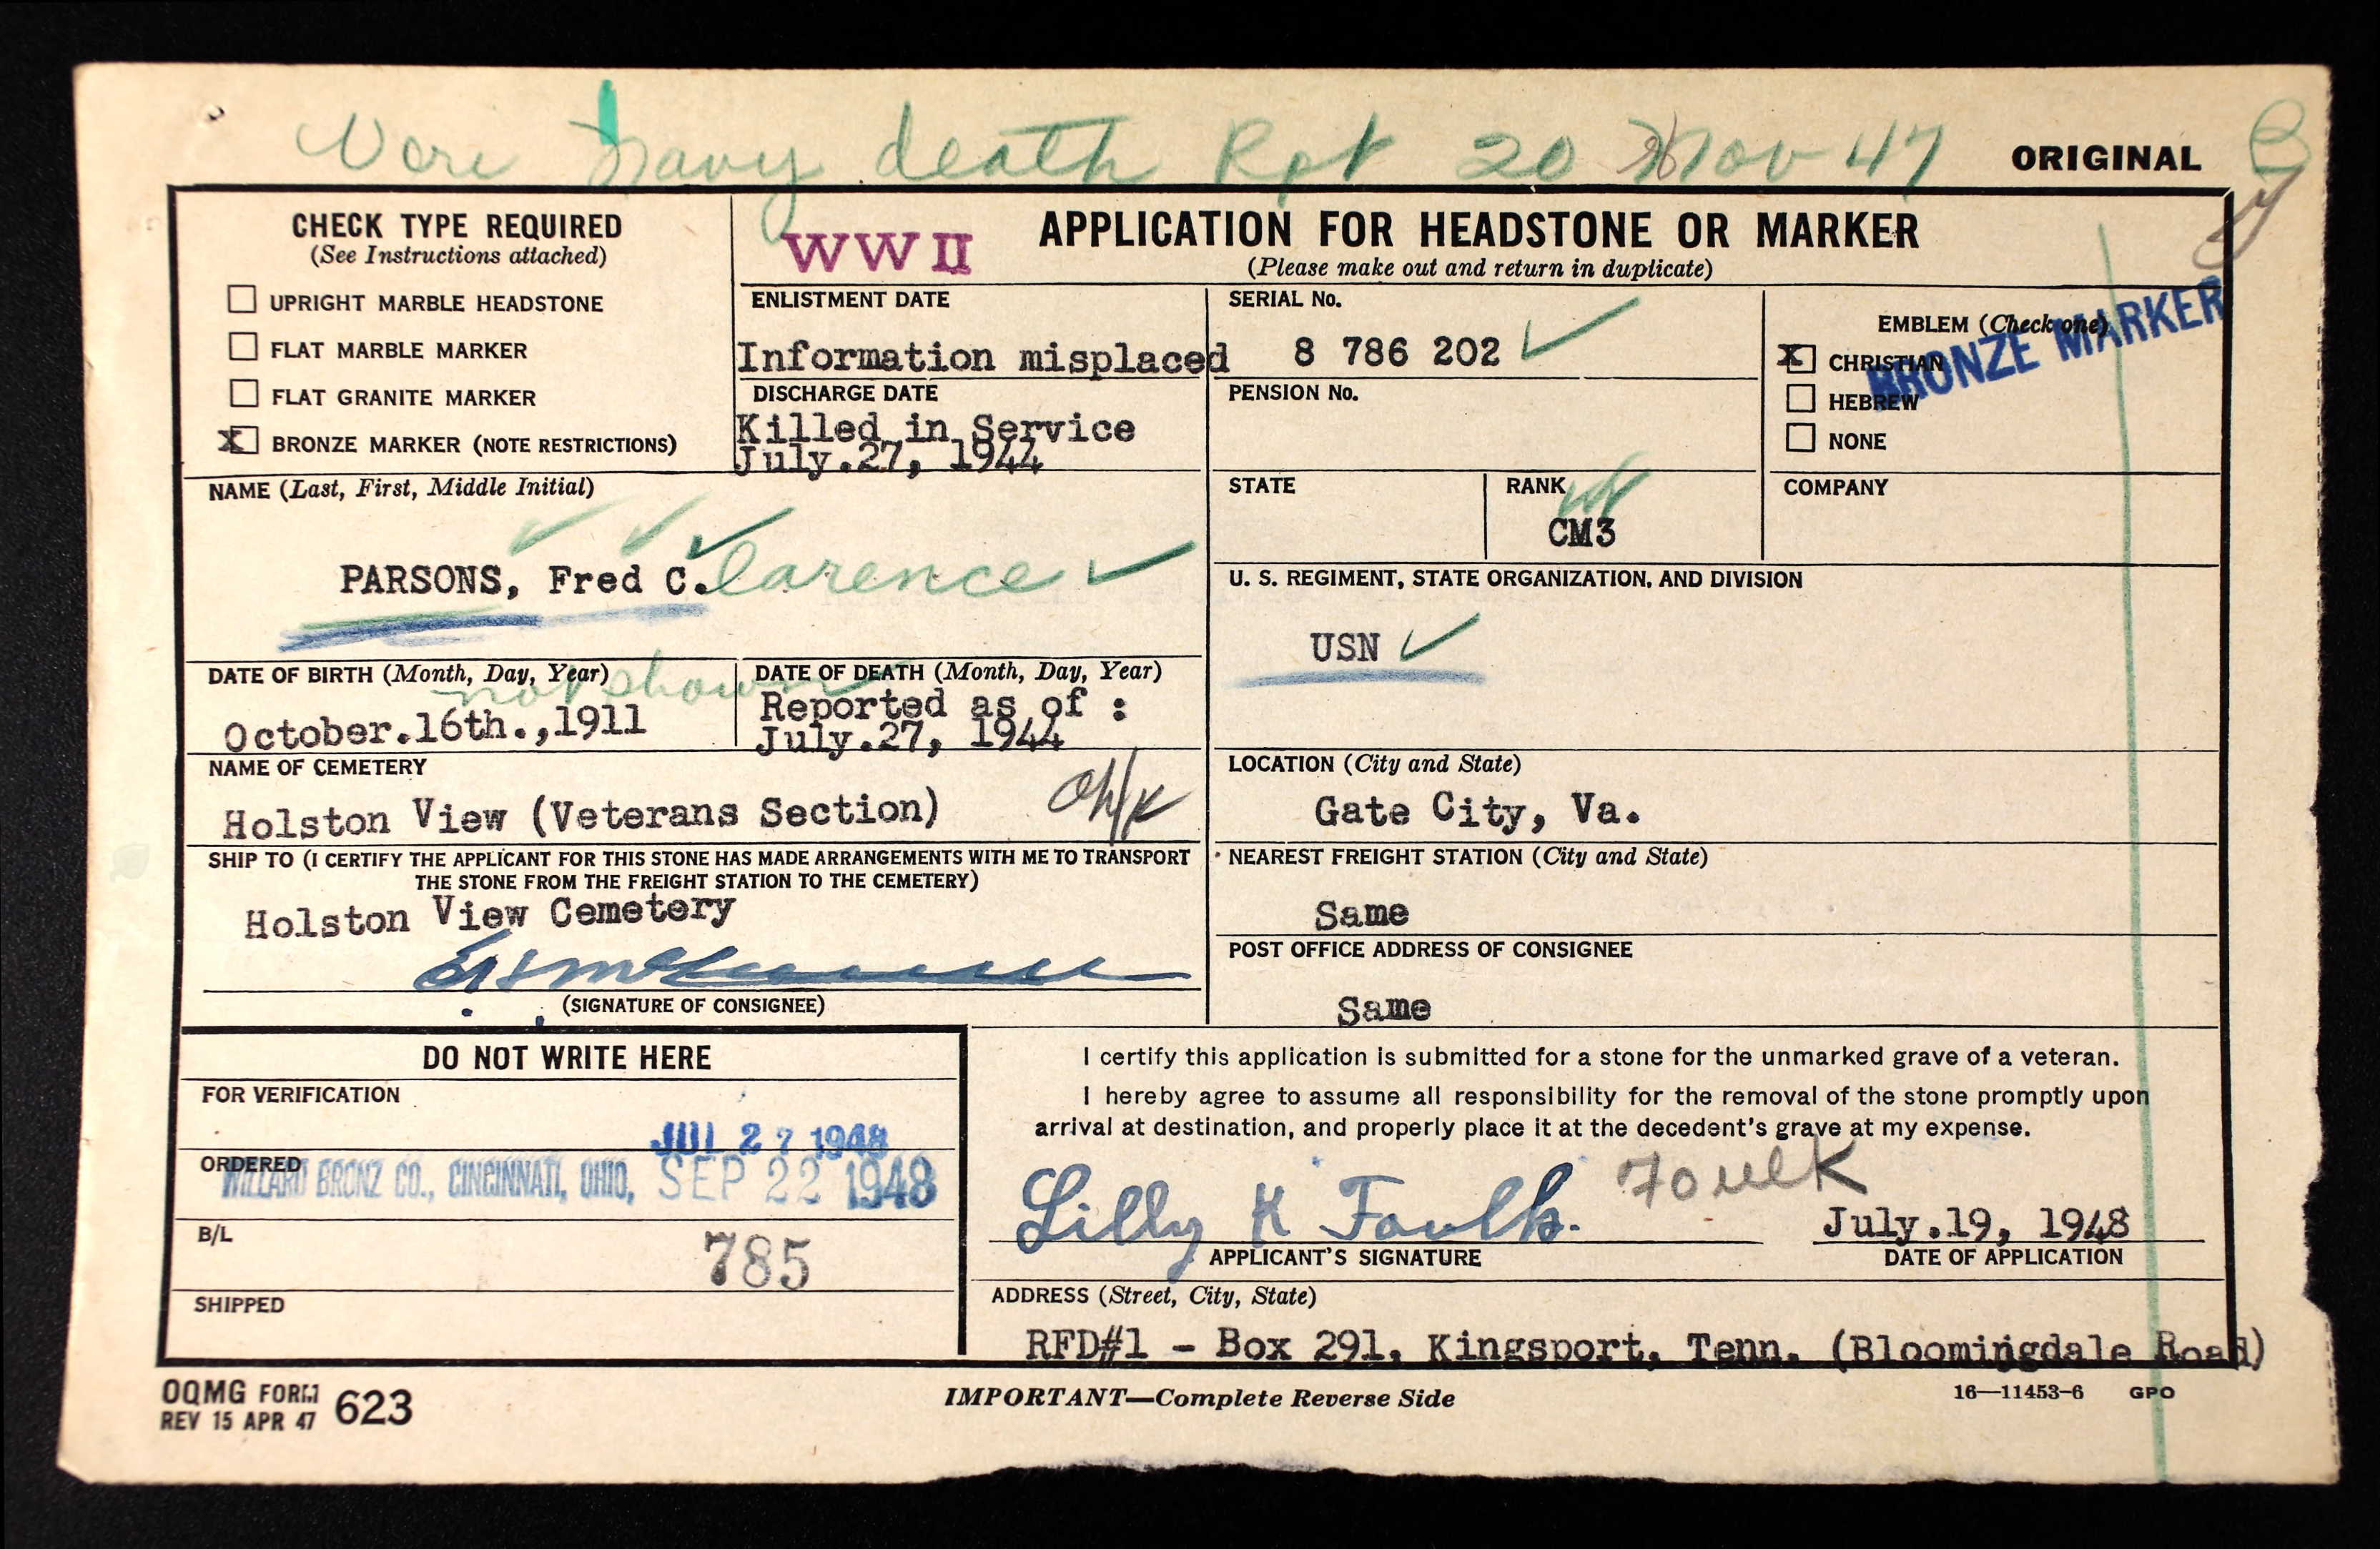 Veri Navy death Rpt 20 Nov 47
ORIGINAL
CHECK TYPE REQUIRED
(See Instructions attached)
UPRIGHT MARBLE HEADSTONE
FLAT MARBLE MARKER
FLAT GRANITE MARKER
X BRONZE MARKER (NOTE RESTRICTIONS)
WW II
APPLICATION FOR HEADSTONE OR MARKER
(Please make out and return in duplicate)
ENLISTMENT DATE
Information misplaced
DISCHARGE DATE
Killed in Service
July.27, 1944
SERIAL No.
8 786 202 ✓
PENSION No.
EMBLEM (Check one)
X CHRISTIAN
HEBREW
NONE
BRONZE MARKER
NAME (Last, First, Middle Initial)
PARSONS, Fred C.larence ✓
STATE
RANK
CM3
COMPANY
U. S. REGIMENT, STATE ORGANIZATION, AND DIVISION
USN ✓
DATE OF BIRTH (Month, Day, Year)
not shown
October.16th.,1911
DATE OF DEATH (Month, Day, Year)
Reported as of :
July.27, 1944
NAME OF CEMETERY
Holston View (Veterans Section)
LOCATION (City and State)
Gate City, Va.
SHIP TO (I CERTIFY THE APPLICANT FOR THIS STONE HAS MADE ARRANGEMENTS WITH ME TO TRANSPORT
THE STONE FROM THE FREIGHT STATION TO THE CEMETERY)
Holston View Cemetery
(SIGNATURE OF CONSIGNEE)
NEAREST FREIGHT STATION (City and State)
Same
POST OFFICE ADDRESS OF CONSIGNEE
Same
DO NOT WRITE HERE
FOR VERIFICATION
JUL 27 1948
ORDERED
WILLARD BRONZ CO., CINCINNATI, OHIO, SEP 22 1948
B/L
785
SHIPPED
I certify this application is submitted for a stone for the unmarked grave of a veteran.
I hereby agree to assume all responsibility for the removal of the stone promptly upon
arrival at destination, and properly place it at the decedent's grave at my expense.
Lilly K Faulk. Foulk
APPLICANT'S SIGNATURE
July.19, 1948
DATE OF APPLICATION
ADDRESS (Street, City, State)
RFD#1 - Box 291, Kingsport, Tenn. (Bloomingdale Road)
OQMG FORM 623
REV 15 APR 47
IMPORTANT—Complete Reverse Side
16—11453-6 GPO